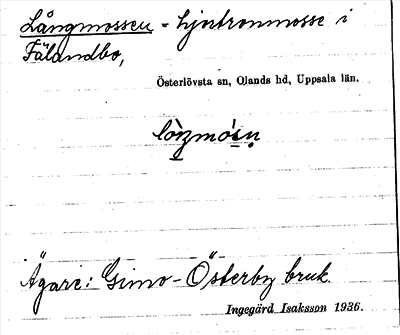 Långmossen - hjortronmosse i
Fälandbo,
Österlövsta sn, Olands hd, Uppsala län.
Ägare: Gimo-Österby bruk.
Ingegärd Isaksson 1936.